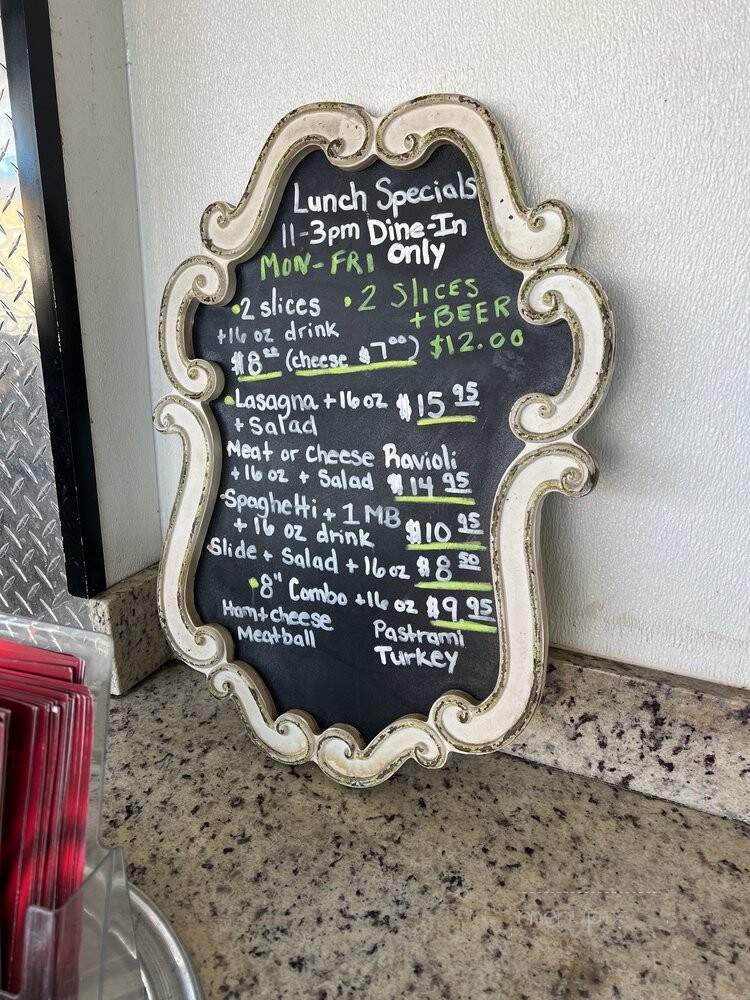 Lunch Specials
11-3pm Dine-In
only
MON-FRI
•2 slices
+16 oz drink
$8.00 (cheese $7.00)
•2 SLICES
+BEER
$12.00
•Lasagna +16 oz $15.95
+ Salad
Meat or Cheese Ravioli
+16 oz + Salad $14.95
•Spaghetti + 1 MB
+ 16 oz drink $10.95
Slide + Salad +16 oz $8.50
•8" Combo +16 oz $9.95
Ham+cheese
Meatball
Pastrami
Turkey